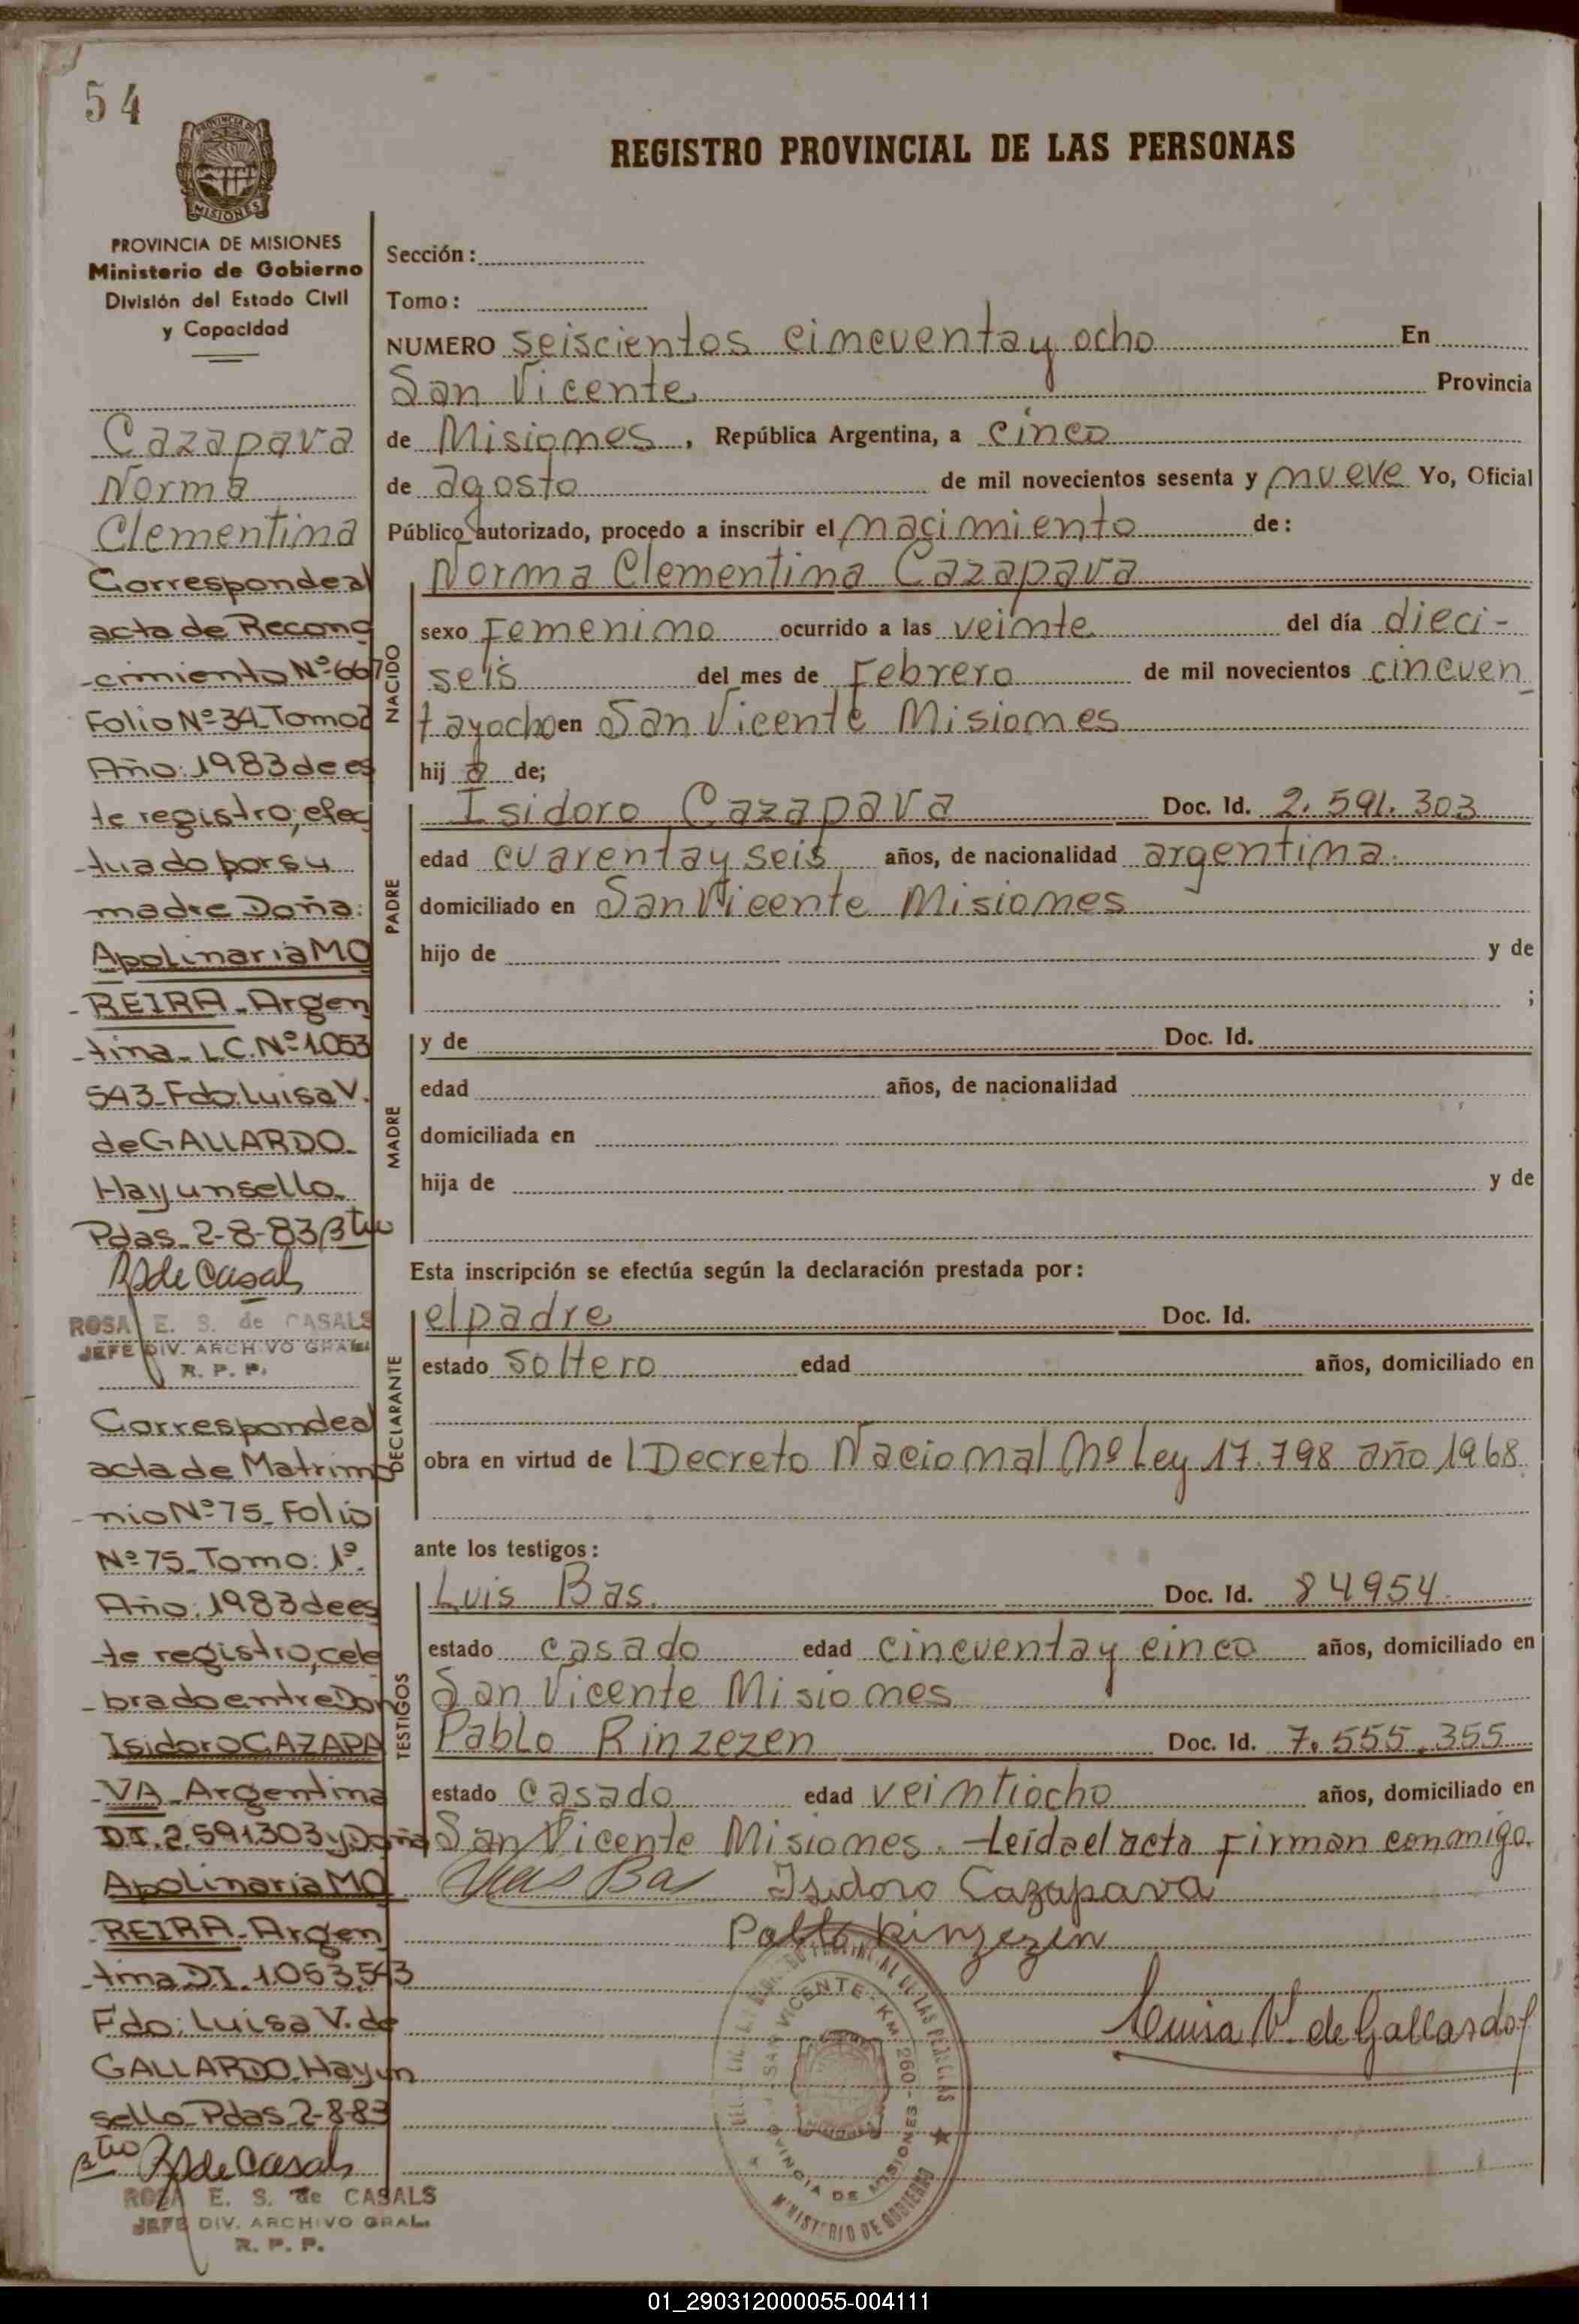 54
PROVINCIA DE MISIONES
Ministerio de Gobierno
División del Estado Civil
y Capacidad
Cazapava
Norma
Clementina
Corresponde al
acta de Recono
-cimiento Nº 667
Folio Nº 34 Tomo 2
Año: 1983 de es
te registro, efec
-tuado por su
madre Doña:
Apolinaria MO
-REIRA - Argen
-tina - L.C. Nº 1.053
543 - Fdo: Luisa V.
de GALLARDO.
Hay un sello.
Pdas. 2-8-83
R S de Casals
ROSA E. S. de CASALS
JEFE DIV. ARCHIVO GRAL.
R. P. P.
Corresponde al
acta de Matrimo
-nio Nº 75 - Folio
Nº 75 - Tomo: 1º.
Año: 1983 de es
-te registro, cele
-brado entre Don
Isidoro CAZAPA
-VA - Argentina
D.I. 2.591.303 y Doña
Apolinaria MO
REIRA - Argen
-tina D.I. 1.053.543
Fdo: Luisa V. de
GALLARDO. Hay un
sello Pdas. 2-8-83
R S de Casals
ROSA E. S. de CASALS
JEFE DIV. ARCHIVO GRAL.
R. P. P.
REGISTRO PROVINCIAL DE LAS PERSONAS
Sección:
Tomo:
NUMERO seiscientos cincuenta y ocho En
San Vicente Provincia
de Misiones, República Argentina, a cinco
de agosto de mil novecientos sesenta y nueve Yo, Oficial
Público autorizado, procedo a inscribir el nacimiento de:
Norma Clementina Cazapava
NACIDO
sexo Femenino ocurrido a las veinte del día dieci-
seis del mes de Febrero de mil novecientos cincuen
tayocho en San Vicente Misiones
hij a de;
PADRE
Isidoro Cazapava Doc. Id. 2.591.303
edad cuarenta y seis años, de nacionalidad argentina.
domiciliado en San Vicente Misiones
hijo de y de
;
MADRE
y de Doc. Id.
edad años, de nacionalidad
domiciliada en
hija de y de
Esta inscripción se efectúa según la declaración prestada por:
DECLARANTE
el padre Doc. Id.
estado soltero edad años, domiciliado en
obra en virtud de l Decreto Nacional Nº Ley 17.798 año 1968.
ante los testigos:
TESTIGOS
Luis Bas. Doc. Id. 84954
estado casado edad cincuenta y cinco años, domiciliado en
San Vicente Misiones
Pablo Rinzezen Doc. Id. 7.555.355
estado casado edad veintiocho años, domiciliado en
San Vicente Misiones. - Leida el acta firman conmigo.
Luis Bas Isidoro Cazapava
Pablo Rinzezen
Luisa V. de Gallardo
SAN VICENTE - KM 260 -
PROVINCIA DE MISIONES
MINISTERIO DE GOBIERNO
01_290312000055-004111